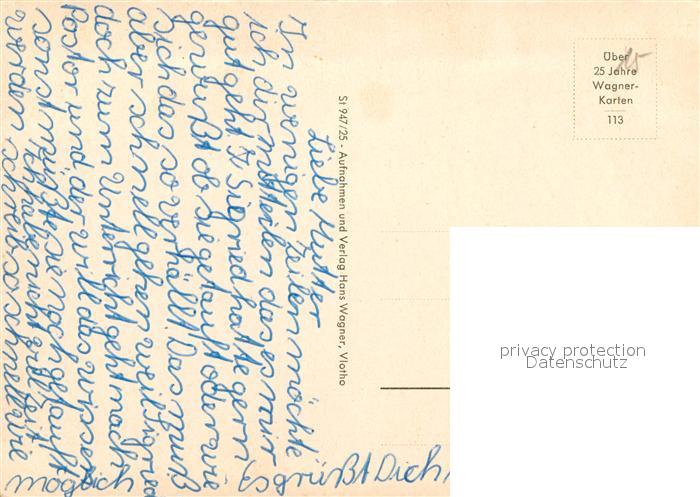 Liebe Mutter
In wenigen Zeilen möchte
ich dir mitteilen das es mir
gut geht. Sigrid hatte gern
gewußt ob sie getauft oder wie
sich das so verhällt. Das muß
aber schnell gehen weil Sigrid
doch zum Unterricht geht nach
Pastor und der will das wissen
sonst müßte sie noch getauft
werden schreib so schnell wie
möglich
Es grüßt Dich
St 947/25 - Aufnahmen und Verlag Hans Wagner, Vlotho
Über
25 Jahre
Wagner-
Karten
113
privacy protection
Datenschutz